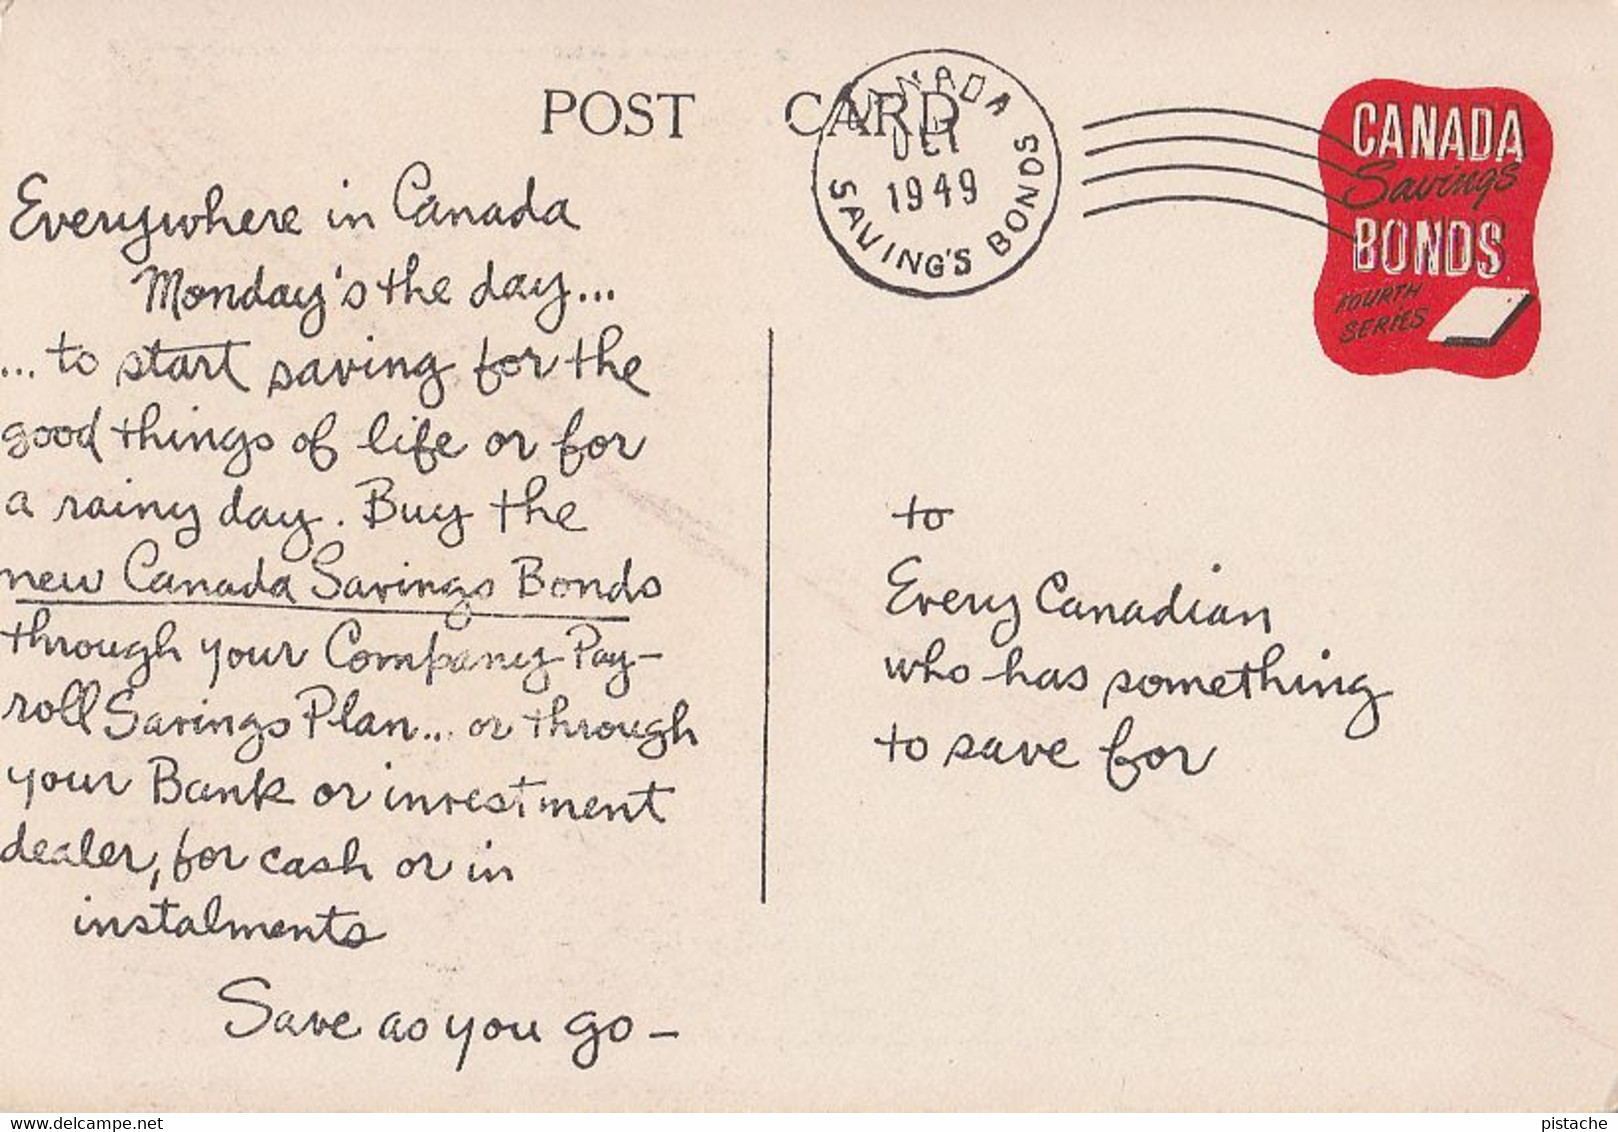 POST CARD
CANADA
OCT
1949
SAVING'S BONDS
CANADA
Savings
BONDS
FOURTH
SERIES
Everywhere in Canada
Monday's the day...
... to start saving for the
good things of life or for
a rainy day. Buy the
new Canada Savings Bonds
through your Company Pay-
roll Savings Plan... or through
your Bank or investment
dealer, for cash or in
instalments
Save as you go –
to
Every Canadian
who has something
to save for
www.delcampe.net
pistache